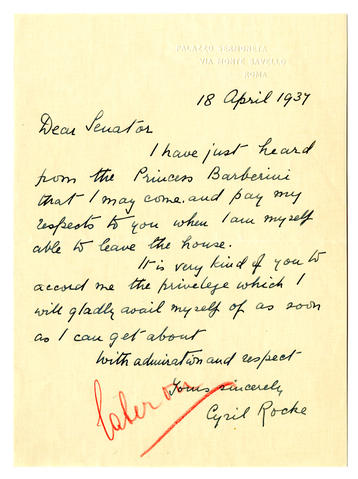 PALAZZO SERMONETA
VIA MONTE SAVELLO
ROMA
18 April 1937
Dear Senator
I have just heard
from the Princess Barberini
that I may come and pay my
respects to you when I am myself
able to leave the house.
It is very kind of you to
accord me the privelege which I
will gladly avail myself of as soon
as I can get about
With admiration and respect
Yours sincerely
Cyril Rocke
later on